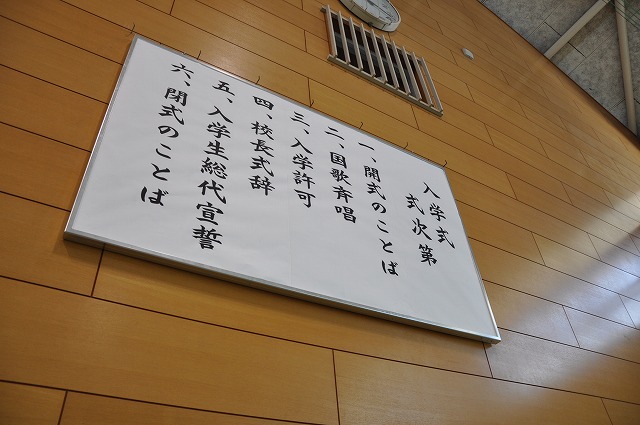 入学式
式次第
一、開式のことば
二、国歌斉唱
三、入学許可
四、校長式辞
五、入学生総代宣誓
六、閉式のことば